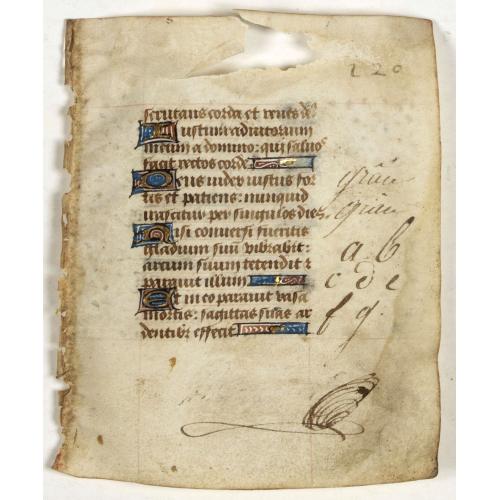 220
scrutans corda et renes ds
Iustum adiutorium
meum a domino: qui saluos
facit rectos corde
Deus iudex iustus for
tis et patiens: nunquid
irascitur per singulos dies
Nisi conuersi fueritis
gladium suū vibrabit:
arcum suum tetendit et
parauit illum
Et in eo parauit vasa
mortis: sagittas suas ar
dentibꝰ effecit
a b
c d e
f g.